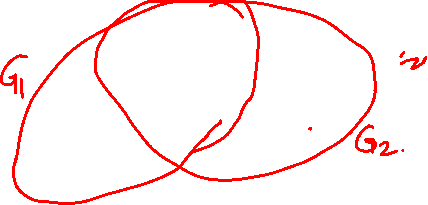 G1
G2.